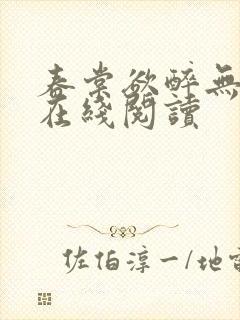 春棠欲醉無
在綫閱讀
佐伯淳一/地